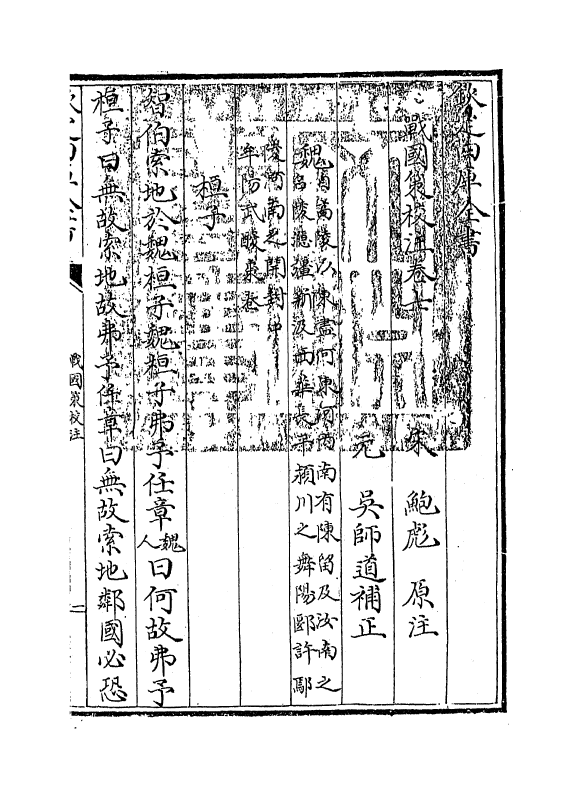 欽定四庫全書
戰國策校注卷七
宋 鮑彪 原注
元 吳師道 補正
魏 自高陵以東盡河東河內南有陳留及汝南之
召陵㶏彊新汲西華長平潁川之舞陽郾許鄢
陵河南之開封中
牟陽武酸棗卷
桓子
智伯索地於魏桓子魏桓子弗予任章魏人曰何故弗予
桓子曰無故索地故弗予任章曰無故索地鄰國必恐
欽定四庫全書
戰國策校注
一